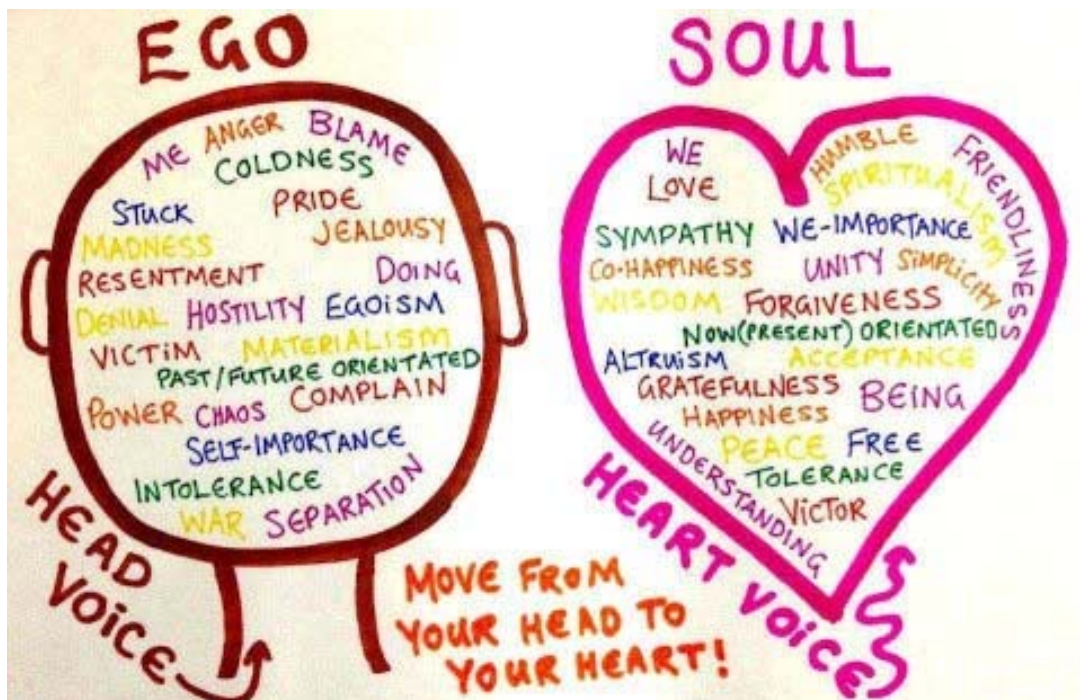 EGO
ME ANGER BLAME
COLDNESS
STUCK PRIDE
MADNESS JEALOUSY
RESENTMENT DOING
DENIAL HOSTILITY EGOISM
VICTIM MATERIALISM
PAST/FUTURE ORIENTATED
POWER CHAOS COMPLAIN
SELF-IMPORTANCE
INTOLERANCE
WAR SEPARATION
HEAD
VOICE
MOVE FROM
YOUR HEAD TO
YOUR HEART!
SOUL
WE HUMBLE FRIENDLINESS
LOVE SPIRITUALISM
SYMPATHY WE-IMPORTANCE
CO-HAPPINESS UNITY SIMPLICITY
WISDOM FORGIVENESS
NOW(PRESENT) ORIENTATED
ALTRUISM ACCEPTANCE
GRATEFULNESS BEING
HAPPINESS
UNDERSTANDING PEACE FREE
TOLERANCE
VICTOR
HEART VOICE